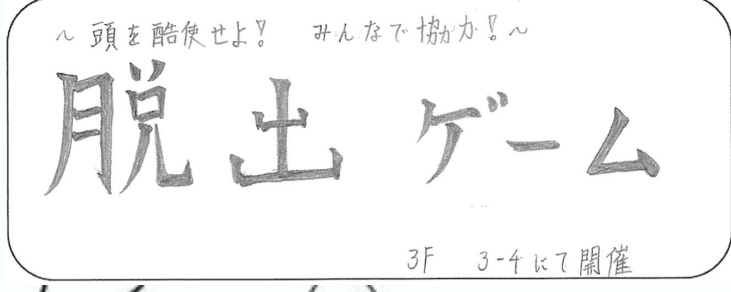 ～頭を酷使せよ! みんなで協力!～
脱出ゲーム
3F 3-4にて開催